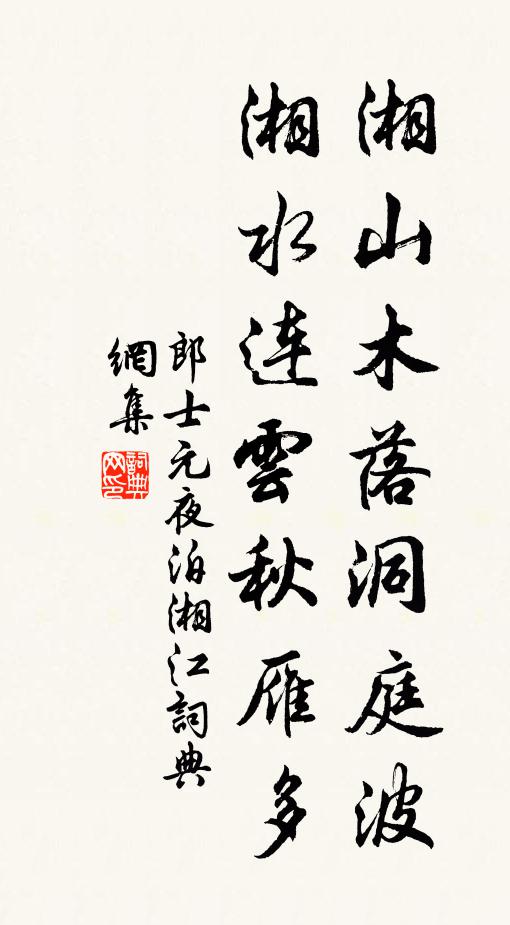 湘山木落洞庭波
湘水連雲秋雁多
郎士元夜泊湘江詞典
網集
詞典網印